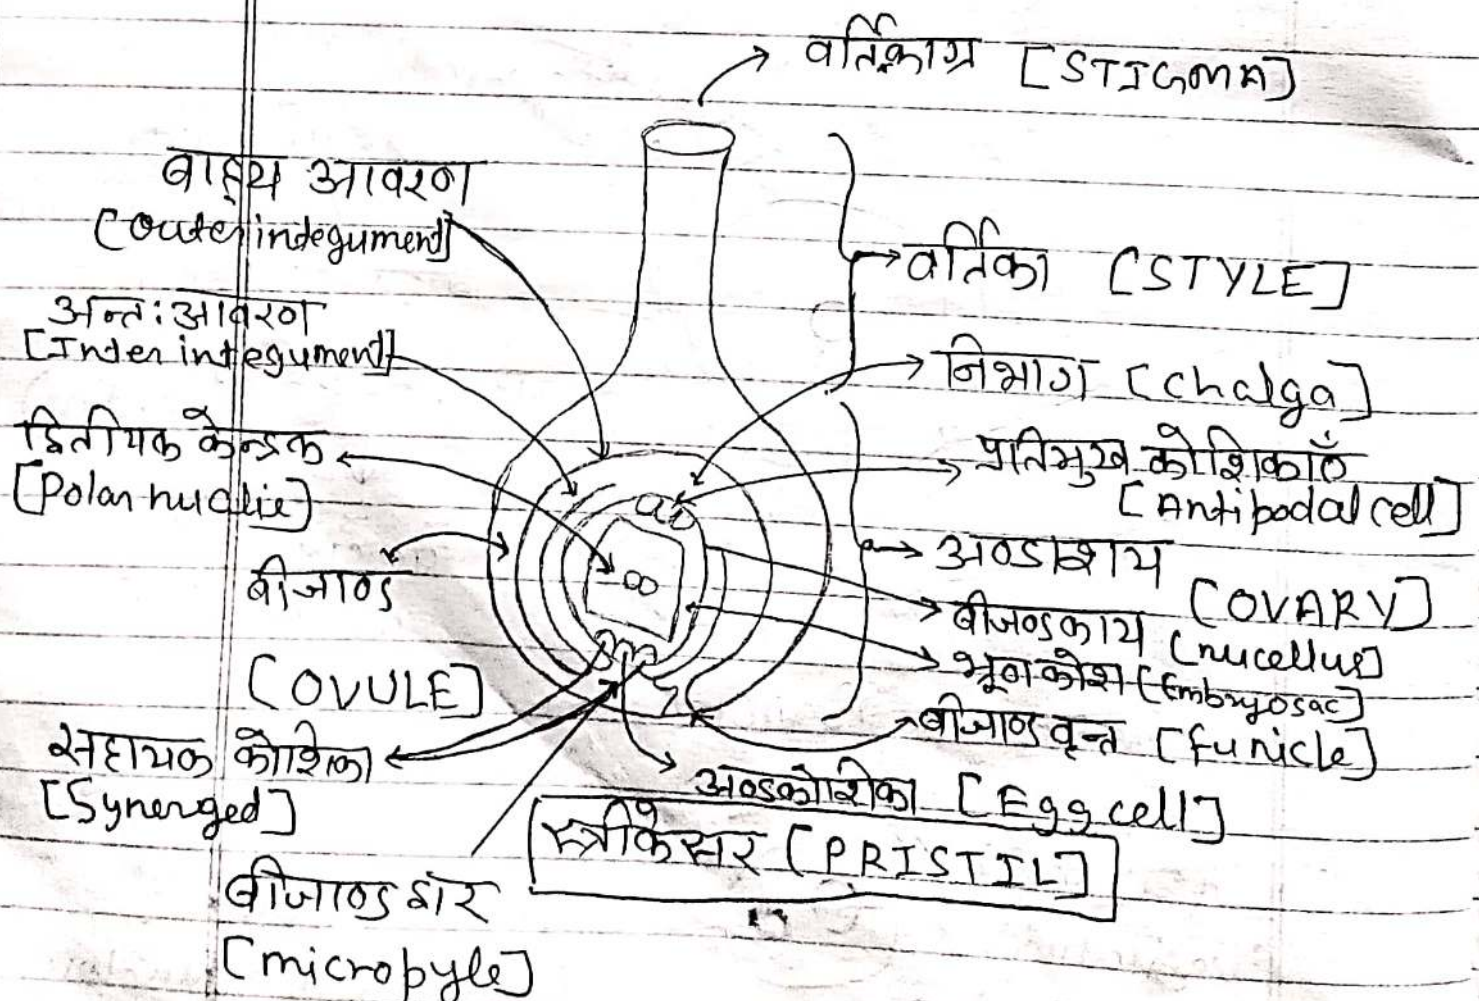 वर्तिकाग्र [STIGMA]
बाह्य आवरण
[Outer indegument]
वर्तिका [STYLE]
अन्त: आवरण
[Inter integument]
निभाग [Chalga]
द्वितीयक केन्द्रक
[Polar nuclie]
प्रतिमुख कोशिकाएँ
[Antipodal cell]
अण्डाशय
[OVARY]
बीजाण्ड
[OVULE]
बीजण्डकाय [nucellus]
भ्रूणकोश [Embryosac]
बीजाण्ड वृन्त [funicle]
सहायक कोशिका
[Synerged]
अण्डकोशिका [Egg cell]
स्त्रीकेसर [PRISTIL]
बीजाण्ड द्वार
[micropyle]